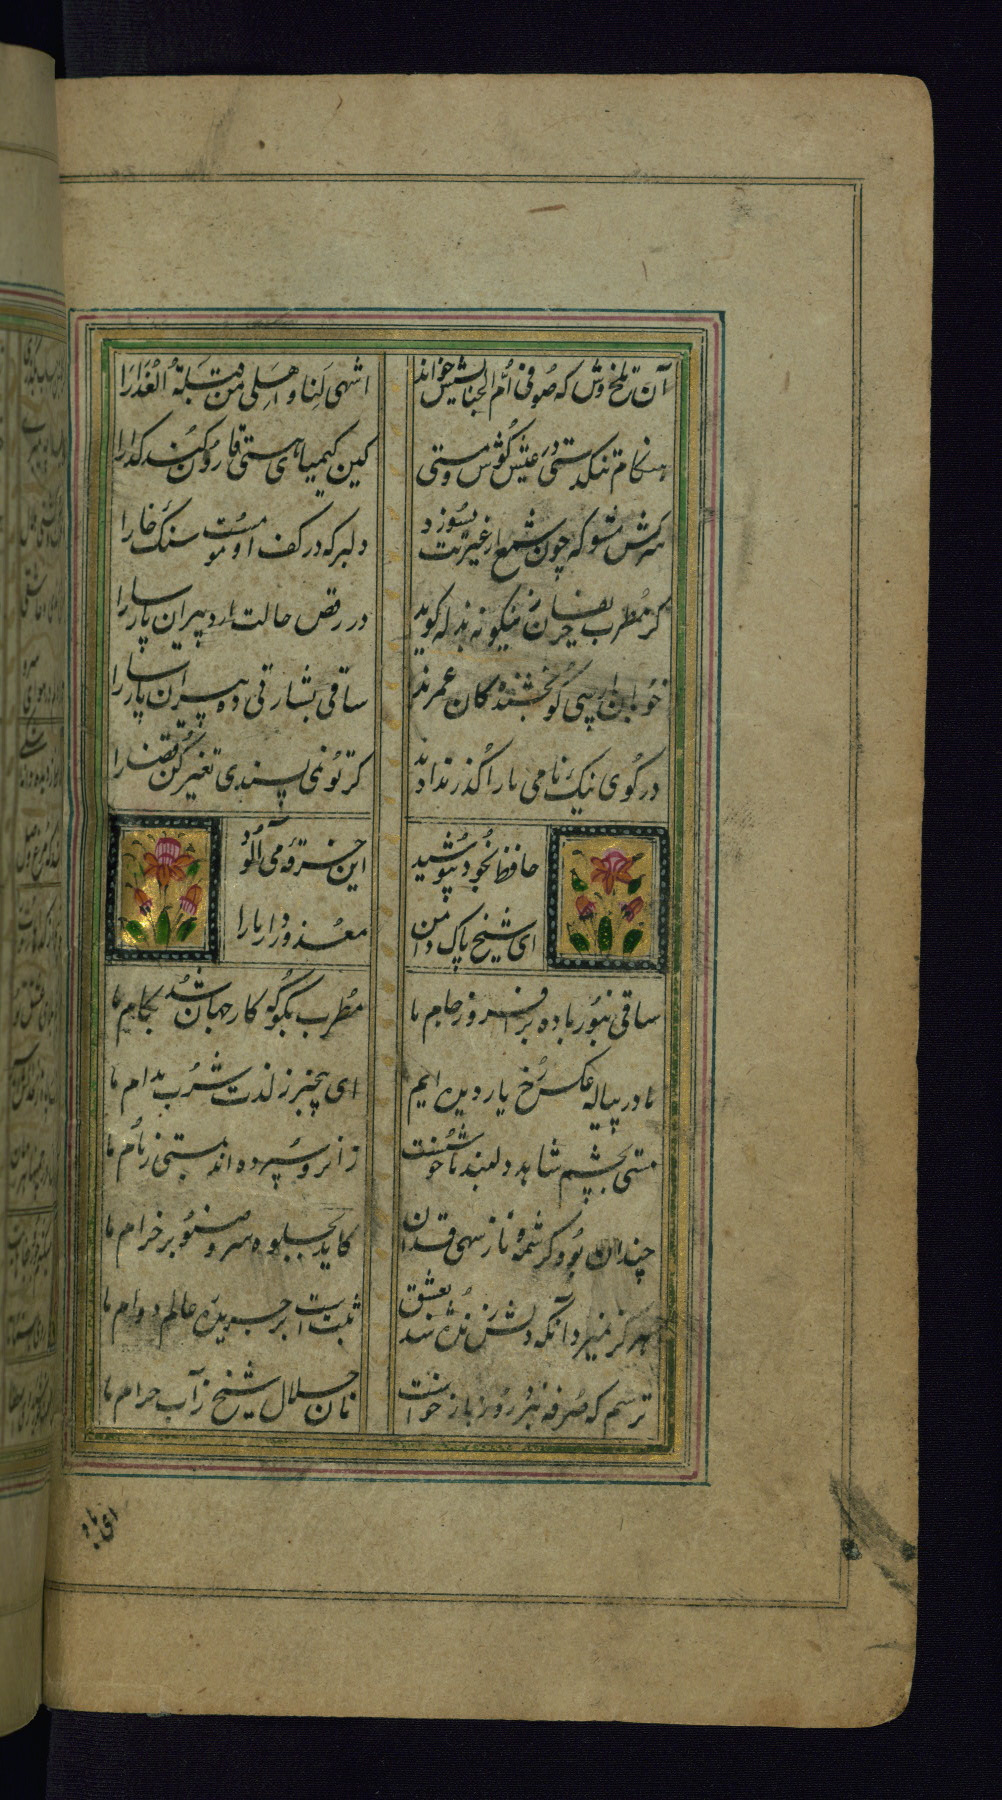 آن تلخ وش که صوفی ام الخبائثش خواند
اشهی لنا و احلی من قبلة العذارا
هنگام تنگدستی در عیش کوش و مستی
کین کیمیای هستی قارون کند کدارا
سرکش مشو که چون شمع از غیرتت بسوزد
دلبر که در کف او مومست سنک خارا
کر مطرب حریفان
در رقص حالت ارد پیران پارسا را
خوبان پارسی گو بخشنده کان عمرند
ساقی بشارتی ده پیران پارسا را
در کوی نیک نامی ما را گذر ندادند
کر تو نمی پسندی تغییر کن قضا را
حافظ بخود نپوشید
این خرقه می آلود
ای شیخ پاک دامن
معذور دار ما را
ساقی بنور باده برافروز جام ما
مطرب بگو که کار جهان شد بکام ما
ما در پیاله عکس رخ یار دیده ایم
ای بیخبر ز لذت شرب مدام ما
مستی بچشم شاهد دلبند ما خوشست
زانرو سپرده اند بمستی زمام ما
چندان بود کرشمه و ناز سهی قدان
کاید بجلوه سرو صنوبر خرام ما
هرکز نمیرد آنکه دلش زنده شد بعشق
ثبت است بر جریده عالم دوام ما
ترسم که صرفه نبرد روز باز خواست
نان حلال شیخ ز آب حرام ما
ای باد